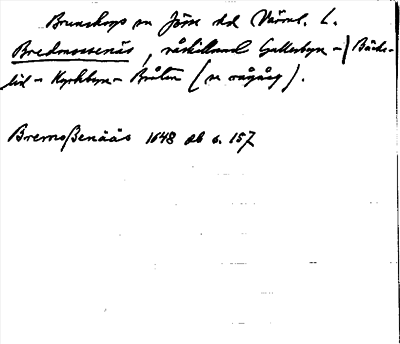 Brunskogs sn Jösse hd Värml. L.
Bredmossenäs, råskillnad Gullerbyn –) Bäcke-
lid – Kyrkbyn – Bråten (se rågång).
Bremoßenääs 1648 ab s. 157